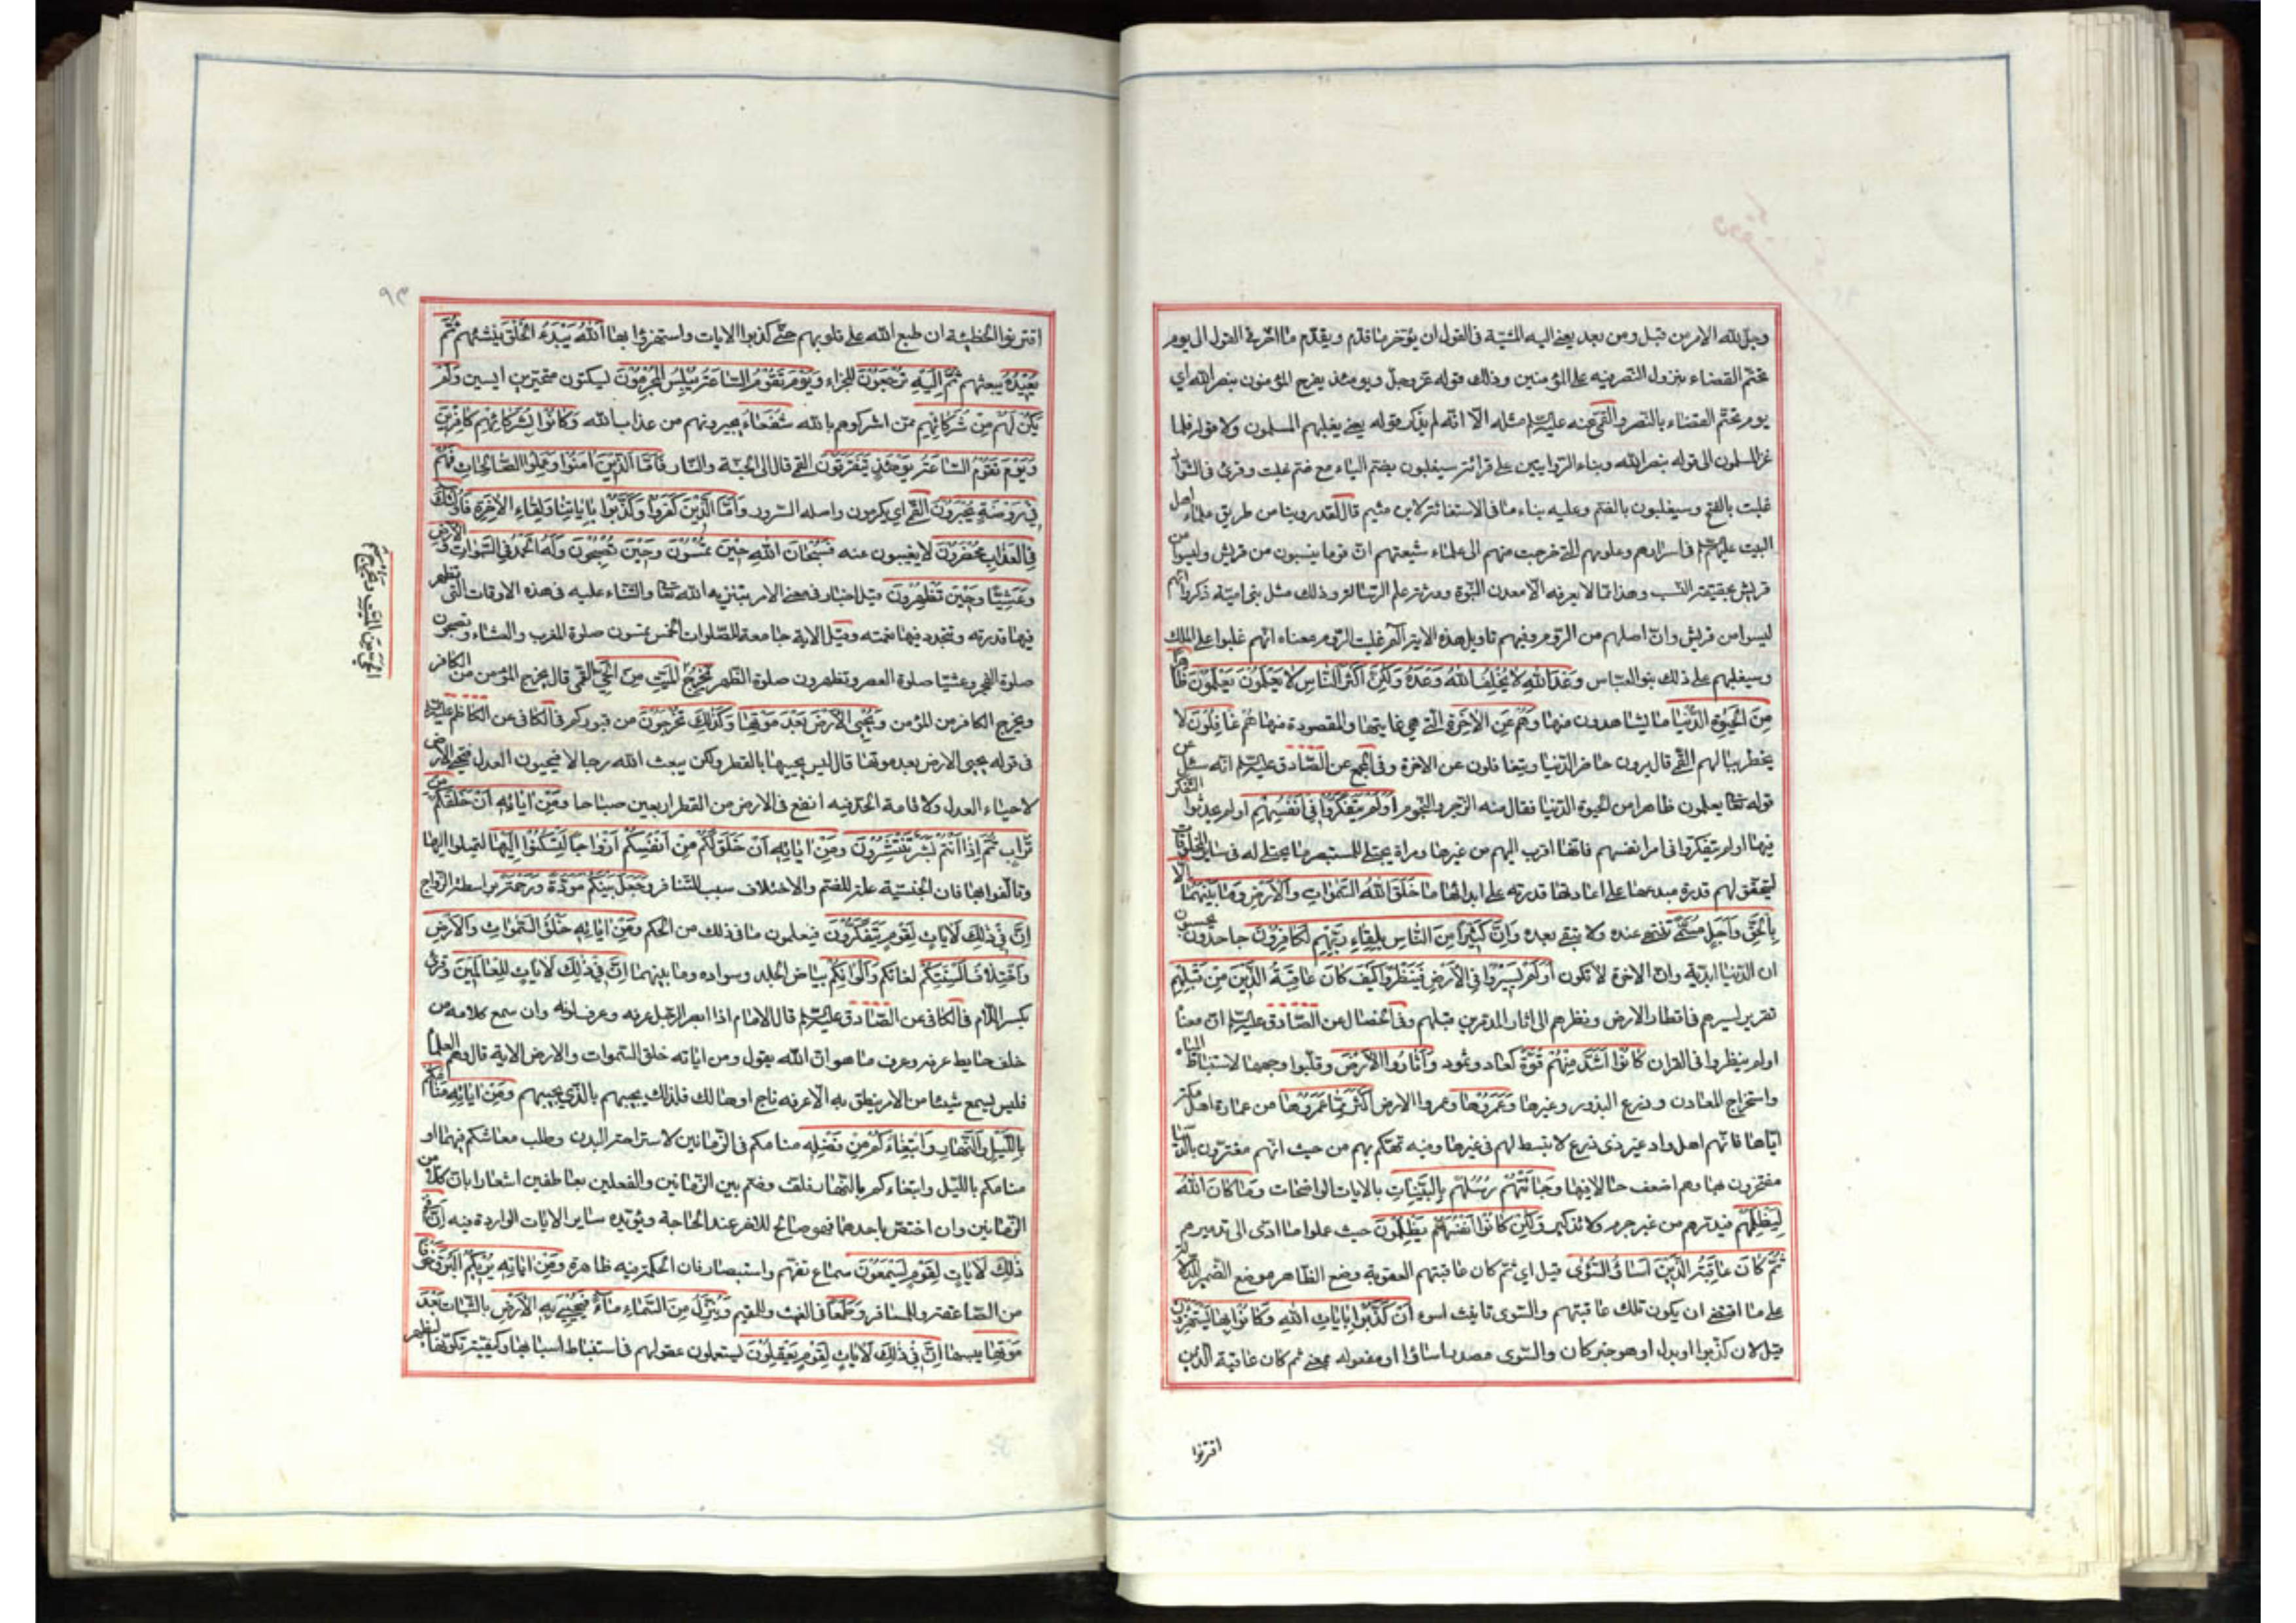 وجل لله الامر من قبل ومن بعد يعني اليه المشية في القول ان يؤخر ما قدم ويقدم ما اخر في القول الى يوم
تحتم القضاء بنزول النصر فيه على المؤمنين وذلك قوله عز وجل ويومئذ يفرح المؤمنون بنصر الله اي
يوم تحتم القضاء بالنصر والقمي عنه عليه السلم مثله الا انه لم يذكر قوله يعني يغلبهم المسلمون ولا قوله فلما
غزا المسلمون الى قوله بنصر الله وبناء الروايتين على قرائة سيغلبون بضم الياء مع ضم غلبت وقرئ في الشواذ
غلبت بالفتح وسيغلبون بالضم وعليه بناء ما في الاستغاثة لابن ميثم قال لقد روينا من طريق علماء اهل
البيت عليهم السلم في اسرارهم وعلومهم التي خرجت منهم الى علماء شيعتهم ان قوما ينسبون من قريش وليسوا من
قريش بحقيقة النسب وهذا مما لا يعرفه الا معدن النبوة وورثة علم الرسالة وذلك مثل بني امية ذكروا انهم
ليسوا من قريش وان اصلهم من الروم وفيهم تاويل هذه الاية الم غلبت الروم معناه انهم غلبوا على الملك
وسيغلبهم على ذلك بنو العباس وَعْدَ اللهِ لا يُخْلِفُ اللهُ وَعْدَهُ وَلكِنَّ اَكْثَرَ النّاسِ لا يَعْلَمُونَ يَعْلَمُونَ ظاهِراً
مِنَ الْحَيوةِ الدُّنْيا ما يشاهدون منها وَهُمْ عَنِ الْاخِرَةِ التي هي غايتها والمقصودة منها هُمْ غافِلُونَ لا
يخطر ببالهم القمي قال يرون حاضر الدنيا ويتغافلون عن الاخرة وفي المجمع عن الصادق عليه السلم انه سئل عن
قوله تعالى يعلمون ظاهرا من الحيوة الدنيا فقال منه الزجر والنجوم اَوَلَمْ يَتَفَكَّرُوا في اَنْفُسِهِمْ اولم يحدثوا التفكر
فيها اولم يتفكروا في امر انفسهم فانها اقرب اليهم من غيرها ومرآة يجتلى للمستبصر ما يجتلى له في ساير المخلوقات
ليتحقق لهم قدرة مبدعها على اعادتها قدرته على ابدائها ما خَلَقَ اللهُ السَّمواتِ وَالْاَرْضَ وَما بَيْنَهُما اِلّا
بِالْحَقِّ وَاَجَلٍ مُسَمًّى تنتهي عنده ولا تبقى بعده وَاِنَّ كَثيراً مِنَ النّاسِ بِلِقاءِ رَبِّهِمْ لَكافِرُونَ جاحدون يحسبون
ان الدنيا ابدية وان الاخرة لا تكون اَوَلَمْ يَسيرُوا فِي الْاَرْضِ فَيَنْظُرُوا كَيْفَ كانَ عاقِبَةُ الَّذينَ مِنْ قَبْلِهِمْ
تقرير لسيرهم في اقطار الارض ونظرهم الى اثار المدمرين قبلهم وفي الخصال عن الصادق عليه السلم ان معناه
اولم ينظروا في القران كانُوا اَشَدَّ مِنْهُمْ قُوَّةً كعاد وثمود وَاَثارُوا الْاَرْضَ وقلبوا وجهها لاستنباط المياه
واستخراج المعادن وزرع البذور وغيرها وَعَمَرُوها وعمروا الارض اَكْثَرَ مِمّا عَمَرُوها من عمارة اهل مكة
اياها فانهم اهل واد غير ذي زرع لا تبسط لهم في غيرها وفيه تهكم بهم من حيث انهم مغترون بالدنيا
مفتخرون بها وهم اضعف حالا فيها وَجاءَتْهُمْ رُسُلُهُمْ بِالْبَيِّناتِ بالايات الواضحات وَما كانَ اللهُ
لِيَظْلِمَهُمْ فيدمرهم من غير جرم ولا تذكير وَلكِنْ كانُوا اَنْفُسَهُمْ يَظْلِمُونَ حيث عملوا ما ادى الى تدميرهم
ثُمَّ كانَ عاقِبَةَ الَّذينَ اَساؤُا السُّوأى قيل اي ثم كان عاقبتهم العقوبة وضع الظاهر موضع الضمير للدلالة
على ما اقتضى ان يكون تلك عاقبتهم والسوى تانيث اسوء اَنْ كَذَّبُوا بِاياتِ اللهِ وَكانُوا بِها يَسْتَهْزِؤُنَ
قيل لان كذبوا او بدل او هو خبر كان والسوى مصدر اساؤا او مفعوله بمعنى ثم كان عاقبة الذين
اقترفوا
٩٣
اقترفوا الخطيئة ان طبع الله على قلوبهم حتى كذبوا الايات واستهزؤا بها اَللهُ يَبْدَءُ الْخَلْقَ ينشئهم ثُمَّ
يُعيدُهُ يبعثهم ثُمَّ اِلَيْهِ تُرْجَعُونَ للجزاء وَيَوْمَ تَقُومُ السّاعَةُ يُبْلِسُ الْمُجْرِمُونَ ليسكتون متحيرين ايسين وَلَمْ
يَكُنْ لَهُمْ مِنْ شُرَكائِهِمْ ممن اشركوهم بالله شُفَعاءُ يجيرونهم من عذاب الله وَكانُوا بِشُرَكائِهِمْ كافِرينَ
وَيَوْمَ تَقُومُ السّاعَةُ يَوْمَئِذٍ يَتَفَرَّقُونَ القمي قال الى الجنة والنار فَاَمَّا الَّذينَ امَنُوا وَعَمِلُوا الصّالِحاتِ فَهُمْ
في رَوْضَةٍ يُحْبَرُونَ القمي اي يكرمون واصله السرور وَاَمَّا الَّذينَ كَفَرُوا وَكَذَّبُوا بِاياتِنا وَلِقاءِ الْاخِرَةِ فَاُولئِكَ
فِي الْعَذابِ مُحْضَرُونَ لا يغيبون عنه فَسُبْحانَ اللهِ حينَ تُمْسُونَ وَحينَ تُصْبِحُونَ وَلَهُ الْحَمْدُ فِي السَّمواتِ وَالْاَرْضِ
وَعَشِيًّا وَحينَ تُظْهِرُونَ قيل اخبار في معنى الامر بتنزيه الله تعالى والثناء عليه في هذه الاوقات التي تظهر
فيها قدرته وتتجدد فيها نعمته وقيل الاية جامعة للصلوات الخمس تمسون صلوة المغرب والعشاء وتصبحون
صلوة الفجر وعشيا صلوة العصر وتظهرون صلوة الظهر يُخْرِجُ الْحَيَّ مِنَ الْمَيِّتِ وَيُخْرِجُ الْمَيِّتَ مِنَ الْحَيِّ القمي قال يخرج المؤمن من الكافر
ويخرج الكافر من المؤمن وَيُحْيِي الْاَرْضَ بَعْدَ مَوْتِها وَكَذلِكَ تُخْرَجُونَ من قبوركم في الكافي عن الكاظم عليه السلم
في قوله يحيي الارض بعد موتها قال ليس يحييها بالقطر ولكن يبعث الله رجالا فيحيون العدل فتحيى الارض
لاحياء العدل ولاقامة الحد فيه انفع في الارض من القطر اربعين صباحا وَمِنْ اياتِهِ اَنْ خَلَقَكُمْ مِنْ
تُرابٍ ثُمَّ اِذا اَنْتُمْ بَشَرٌ تَنْتَشِرُونَ وَمِنْ اياتِهِ اَنْ خَلَقَ لَكُمْ مِنْ اَنْفُسِكُمْ اَزْواجاً لِتَسْكُنُوا اِلَيْها لتميلوا اليها
وتالفوا بها فان الجنسية علة للضم والاختلاف سبب للتنافر وَجَعَلَ بَيْنَكُمْ مَوَدَّةً وَرَحْمَةً بواسطة الزواج
اِنَّ في ذلِكَ لَاياتٍ لِقَوْمٍ يَتَفَكَّرُونَ فيعلمون ما في ذلك من الحكم وَمِنْ اياتِهِ خَلْقُ السَّمواتِ وَالْاَرْضِ
وَاخْتِلافُ اَلْسِنَتِكُمْ لغاتكم وَاَلْوانِكُمْ بياض الجلد وسواده وما بينهما اِنَّ في ذلِكَ لَاياتٍ لِلْعالَمينَ وقرئ
بكسر اللام في الكافي عن الصادق عليه السلم قال الامام اذا ابصر الرجل عرفه وعرف لونه وان سمع كلامه من
خلف حايط عرفه وعرف ما هو ان الله يقول ومن اياته خلق السموات والارض الاية قال وهم العلماء
فليس يسمع شيئا من الامر ينطق به الا عرفه ناج او هالك فلذلك يجيبهم بالذي يجيبهم وَمِنْ اياتِهِ مَنامُكُمْ
بِاللَّيْلِ وَالنَّهارِ وَابْتِغاؤُكُمْ مِنْ فَضْلِهِ منامكم في الزمانين لاستراحة البدن وطلب معاشكم فيهما او
منامكم بالليل وابتغاءكم بالنهار فلف وضم بين الزمانين والفعلين بعاطفين اشعارا بان كلا من
الزمانين وان اختص باحدهما فهو صالح للاخر عند الحاجة ويؤيده ساير الايات الواردة فيه اِنَّ في
ذلِكَ لَاياتٍ لِقَوْمٍ يَسْمَعُونَ سماع تفهم واستبصار فان الحكمة فيه ظاهرة وَمِنْ اياتِهِ يُريكُمُ الْبَرْقَ خَوْفاً
من الصاعقة وللمسافر وَطَمَعاً في الغيث وللمقيم وَيُنَزِّلُ مِنَ السَّماءِ ماءً فَيُحْيي بِهِ الْاَرْضَ بالنبات بَعْدَ
مَوْتِها يبسها اِنَّ في ذلِكَ لَاياتٍ لِقَوْمٍ يَعْقِلُونَ يستعملون عقولهم في استنباط اسبابها وكيفية تكونها ليظهر